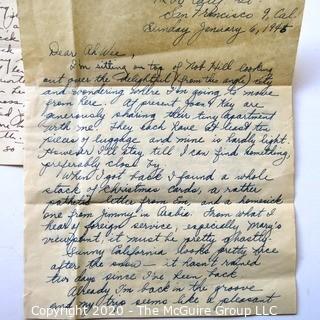 San Francisco 9, Cal.
Sunday January 6, 1945
Dear Ah Nee,
I'm sitting on top of Nob Hill looking
out over the delightful (from this angle) city
and wondering where I'm going to move
from here. At present Joan & Key are
generously sharing their tiny apartment
with me. They each have at least ten
pieces of luggage and mine is hardly light.
However I'll stay till I can find something,
preferably close by.
When I got back I found a whole
stack of Christmas cards, a rather
pathetic letter from Em, and a homesick
one from Jimmy in Arabia. From what I
hear of foreign service, especially Mary's
viewpoint, it must be pretty ghastly.
Sunny California looks pretty nice
after the snow — it hasn't rained
two days since I've been back.
Already I'm back in the groove
and my trip seems like a pleasant
Copyright 2020 - The McGuires Group LLC